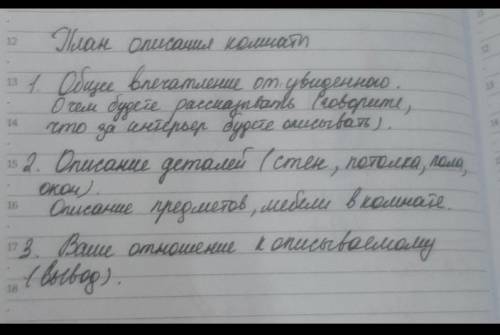 12
План описания комнаты
13
1. Общее впечатление от увиденного.
О чем будете рассказывать (говорите,
14
что за интерьер будете описывать).
15
2. Описание деталей (стен, потолка, пола,
окон).
16
Описание предметов, мебели в комнате.
17
3. Ваше отношение к описываемому
(вывод).
18